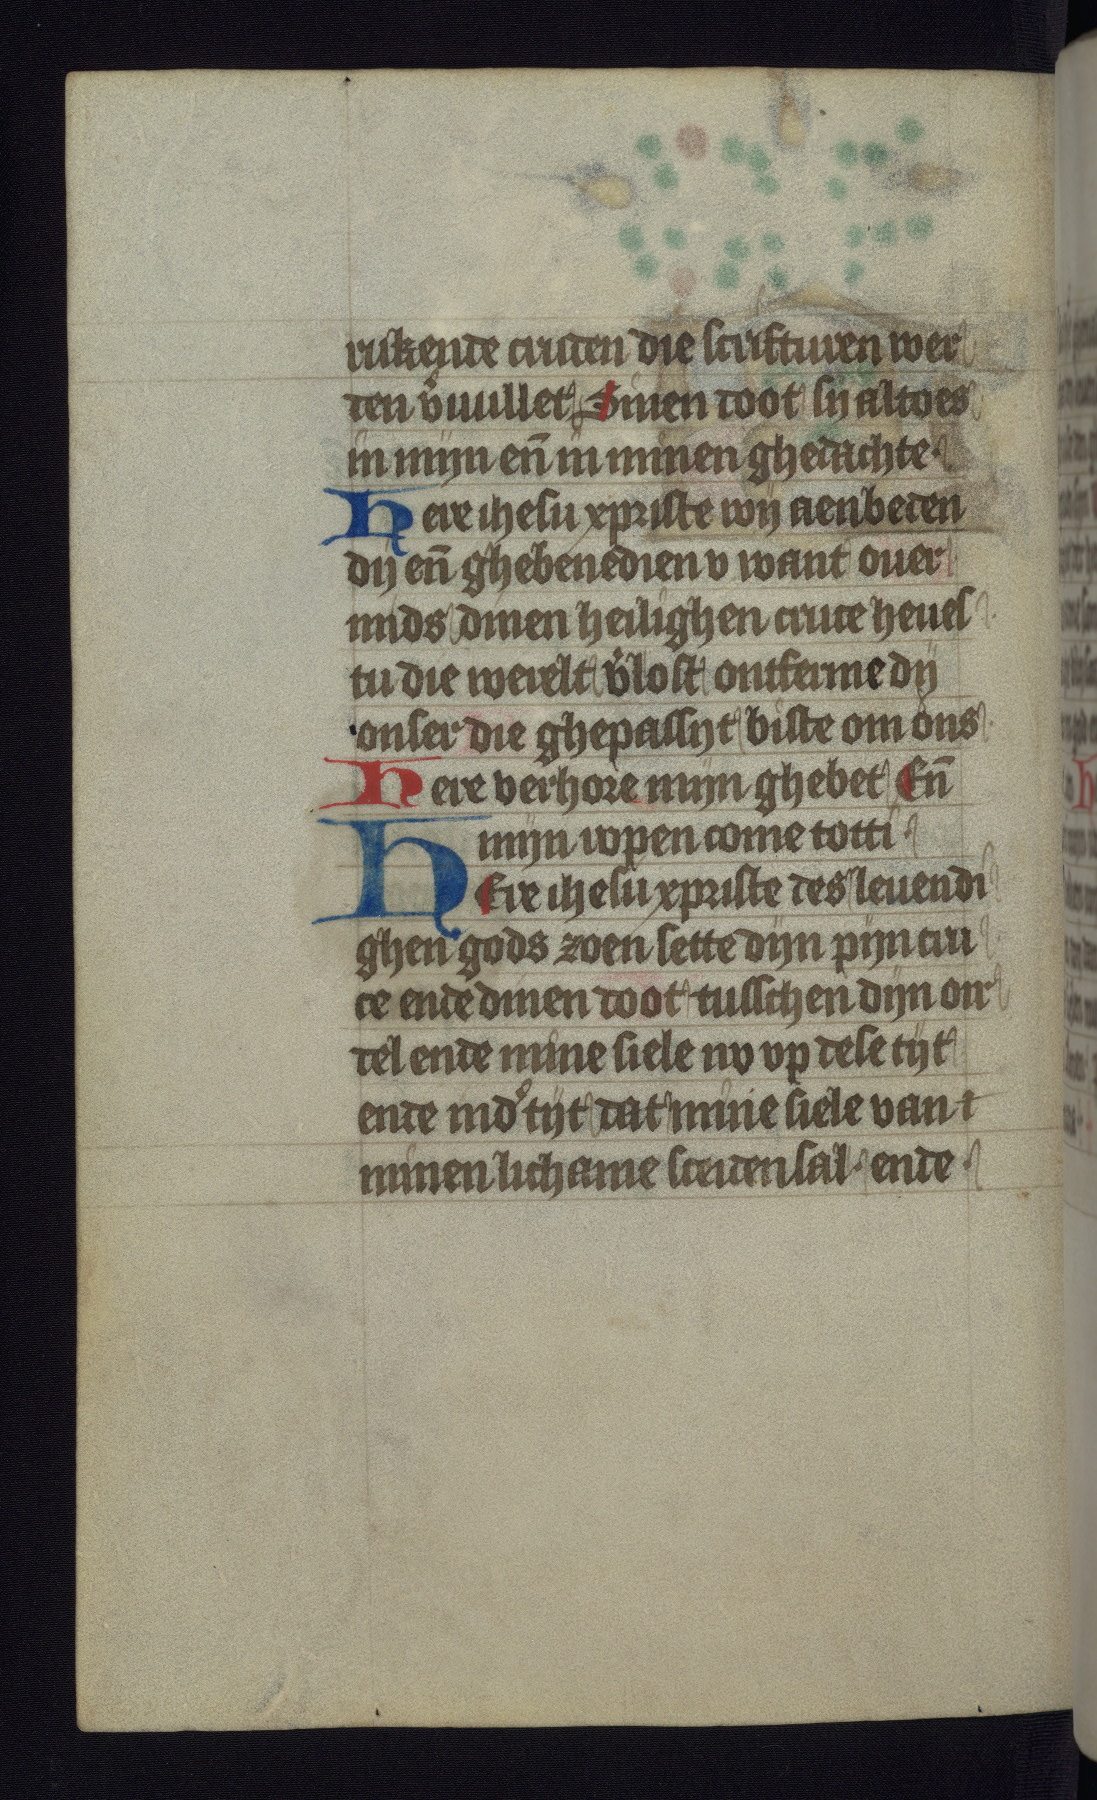 rukende cruden die scrifturen wer
den v̉vullet Sinen doot sy altoes
in mijn en̄ in minen ghedachte
Here ihesu xpriste wij aenbeden
dij en̄ ghebenedien v want ouer
mids dinen heilighen cruce heues
tu die werelt v̉lost ontferme dij
onser die ghepassijt biste om ons
Here verhore mijn ghebet En̄
mijn ropen come totti
HEre ihesu xpriste des leuendi
ghen gods zoen sette dijn pijn cru
ce ende dinen doot tusschen dijn oir
del ende mine siele nv vp dese tijt
ende in d̉ tijt dat mine siele van
minen lichame sceiden sal ende